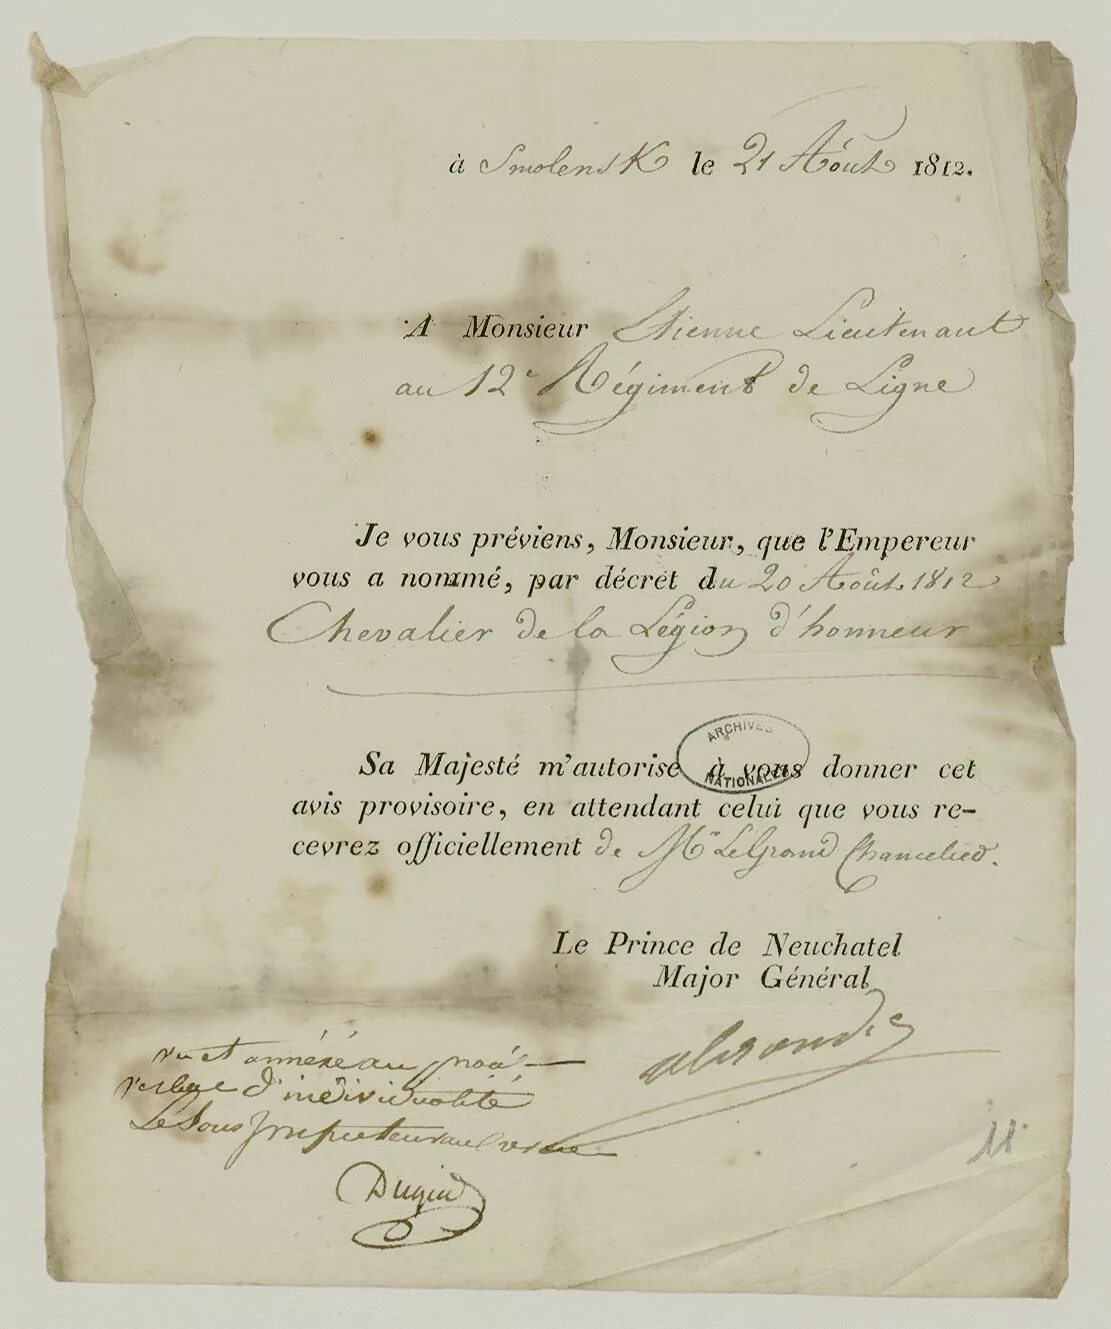 à Smolensk le 21 Août 1812.
A Monsieur Etienne Lieutenant
au 12e Régiment de Ligne
Je vous préviens, Monsieur, que l'Empereur
vous a nommé, par décret du 20 Août 1812
Chevalier de la Légion d'honneur
ARCHIVES
NATIONALES
Sa Majesté m'autorise à vous donner cet
avis provisoire, en attendant celui que vous re-
cevrez officiellement de Mr Le Grand Chancelier.
Le Prince de Neuchatel
Major Général
Alexandre
vu et annéxé au procès
verbal d'individualité
Le Sous
11